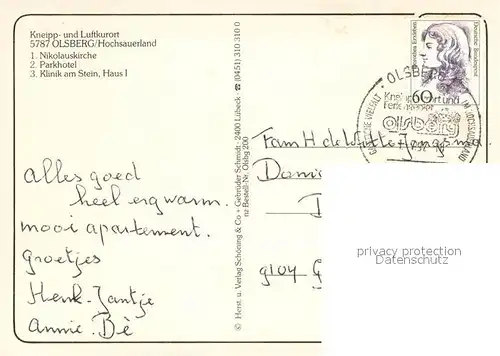 Kneipp- und Luftkurort
5787 OLSBERG/Hochsauerland
1. Nikolauskirche
2. Parkhotel
3. Klinik am Stein, Haus I
Alles goed
heel erg warm.
mooi apartement.
Groetjes
Henk. Jantje
Annie. Dè
© Herst. u. Verlag Schöning & Co + Gebrüder Schmidt, 2400 Lübeck ☎ (0451) 310 310 0
nz Bestell-Nr. Olsbg 200
Deutsche Bundespost
60
OLSBERG
Kneipp
Ferien
olsberg
IM HOCHSAUERLAND
Fam H de Witte-Jongsma.
9104 G
privacy protection
Datenschutz